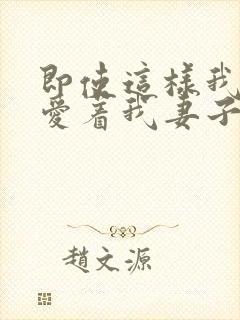 即使這樣我
愛着我妻子
趙文源